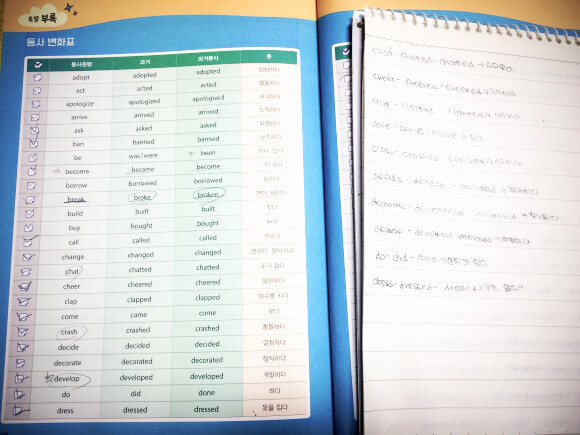 특별 부록
동사 변화표
동사원형 과거 과거분사 뜻
adopt adopted adopted 입양하다
act acted acted 행동하다
apologize apologized apologized 사과하다
arrive arrived arrived 도착하다
ask asked asked 요청하다
ban banned banned 금지하다
be was/were been 이다, 있다
become became become ~이 되다
borrow borrowed borrowed 빌리다
break broke broken
build built built 짓다
buy bought bought 사다
call called called 전화하다
change changed changed 변하다, 달라지다
chat chatted chatted 수다 떨다
cheer cheered cheered 응원하다
clap clapped clapped 박수를 치다
come came come 오다
crash crashed crashed 충돌하다
decide decided decided 결정하다
decorate decorated decorated 장식하다
develop developed developed 개발하다
do did done 하다
dress dressed dressed 옷을 입다
chat- chatted-
cheer- cheered- cheered
come- came- come
decide- decided- decided
do- did- done
dress- dressed- dressed